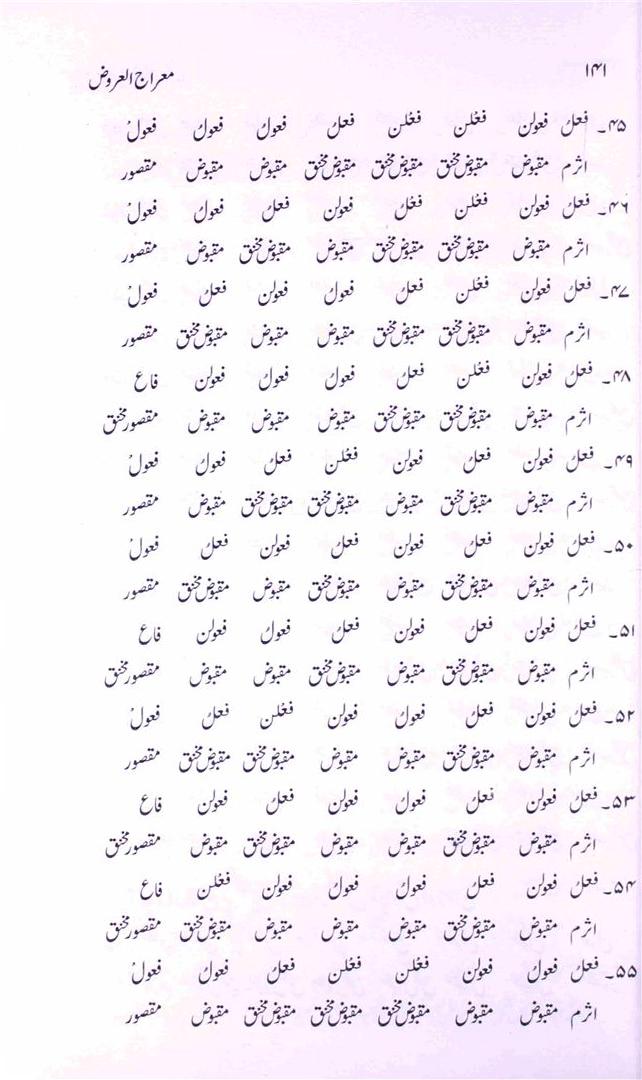 ۱۴۱ معراج العروض
۴۵۔ فعلُ فعولن فعْلن فعْلن فعلُ فعولُ فعولُ فعولْ
اثرم مقبوض مقبوض مخنق مقبوض مخنق مقبوض مخنق مقبوض مقبوض مقصور
۴۶۔ فعلُ فعولن فعْلن فعْلُ فعولن فعلُ فعولُ فعولْ
اثرم مقبوض مقبوض مخنق مقبوض مخنق مقبوض مقبوض مخنق مقبوض مقصور
۴۷۔ فعلُ فعولن فعْلن فعلُ فعولُ فعولن فعلُ فعولْ
اثرم مقبوض مقبوض مخنق مقبوض مخنق مقبوض مقبوض مقبوض مخنق مقصور
۴۸۔ فعلُ فعولن فعْلن فعلُ فعولُ فعولُ فعولن فاع
اثرم مقبوض مقبوض مخنق مقبوض مخنق مقبوض مقبوض مقبوض مقصور مخنق
۴۹۔ فعلُ فعولن فعلُ فعولن فعْلن فعلُ فعولُ فعولْ
اثرم مقبوض مقبوض مخنق مقبوض مقبوض مخنق مقبوض مخنق مقبوض مقصور
۵۰۔ فعلُ فعولن فعلُ فعولن فعلُ فعولن فعلُ فعولْ
اثرم مقبوض مقبوض مخنق مقبوض مقبوض مخنق مقبوض مقبوض مخنق مقصور
۵۱۔ فعلُ فعولن فعلُ فعولن فعلُ فعولُ فعولن فاع
اثرم مقبوض مقبوض مخنق مقبوض مقبوض مخنق مقبوض مقبوض مقصور مخنق
۵۲۔ فعلُ فعولن فعلُ فعولُ فعولن فعْلن فعلُ فعولْ
اثرم مقبوض مقبوض مخنق مقبوض مقبوض مقبوض مخنق مقبوض مخنق مقصور
۵۳۔ فعلُ فعولن فعلُ فعولُ فعولن فعلُ فعولن فاع
اثرم مقبوض مقبوض مخنق مقبوض مقبوض مقبوض مخنق مقبوض مقصور مخنق
۵۴۔ فعلُ فعولن فعلُ فعولُ فعولُ فعولن فعْلن فاع
اثرم مقبوض مقبوض مخنق مقبوض مقبوض مقبوض مقبوض مخنق مقصور مخنق
۵۵۔ فعلُ فعولُ فعولن فعْلن فعْلن فعلُ فعولُ فعولْ
اثرم مقبوض مقبوض مقبوض مخنق مقبوض مخنق مقبوض مخنق مقبوض مقصور